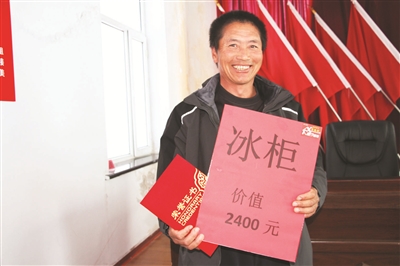 冰柜
价值
2400 元
荣誉证书